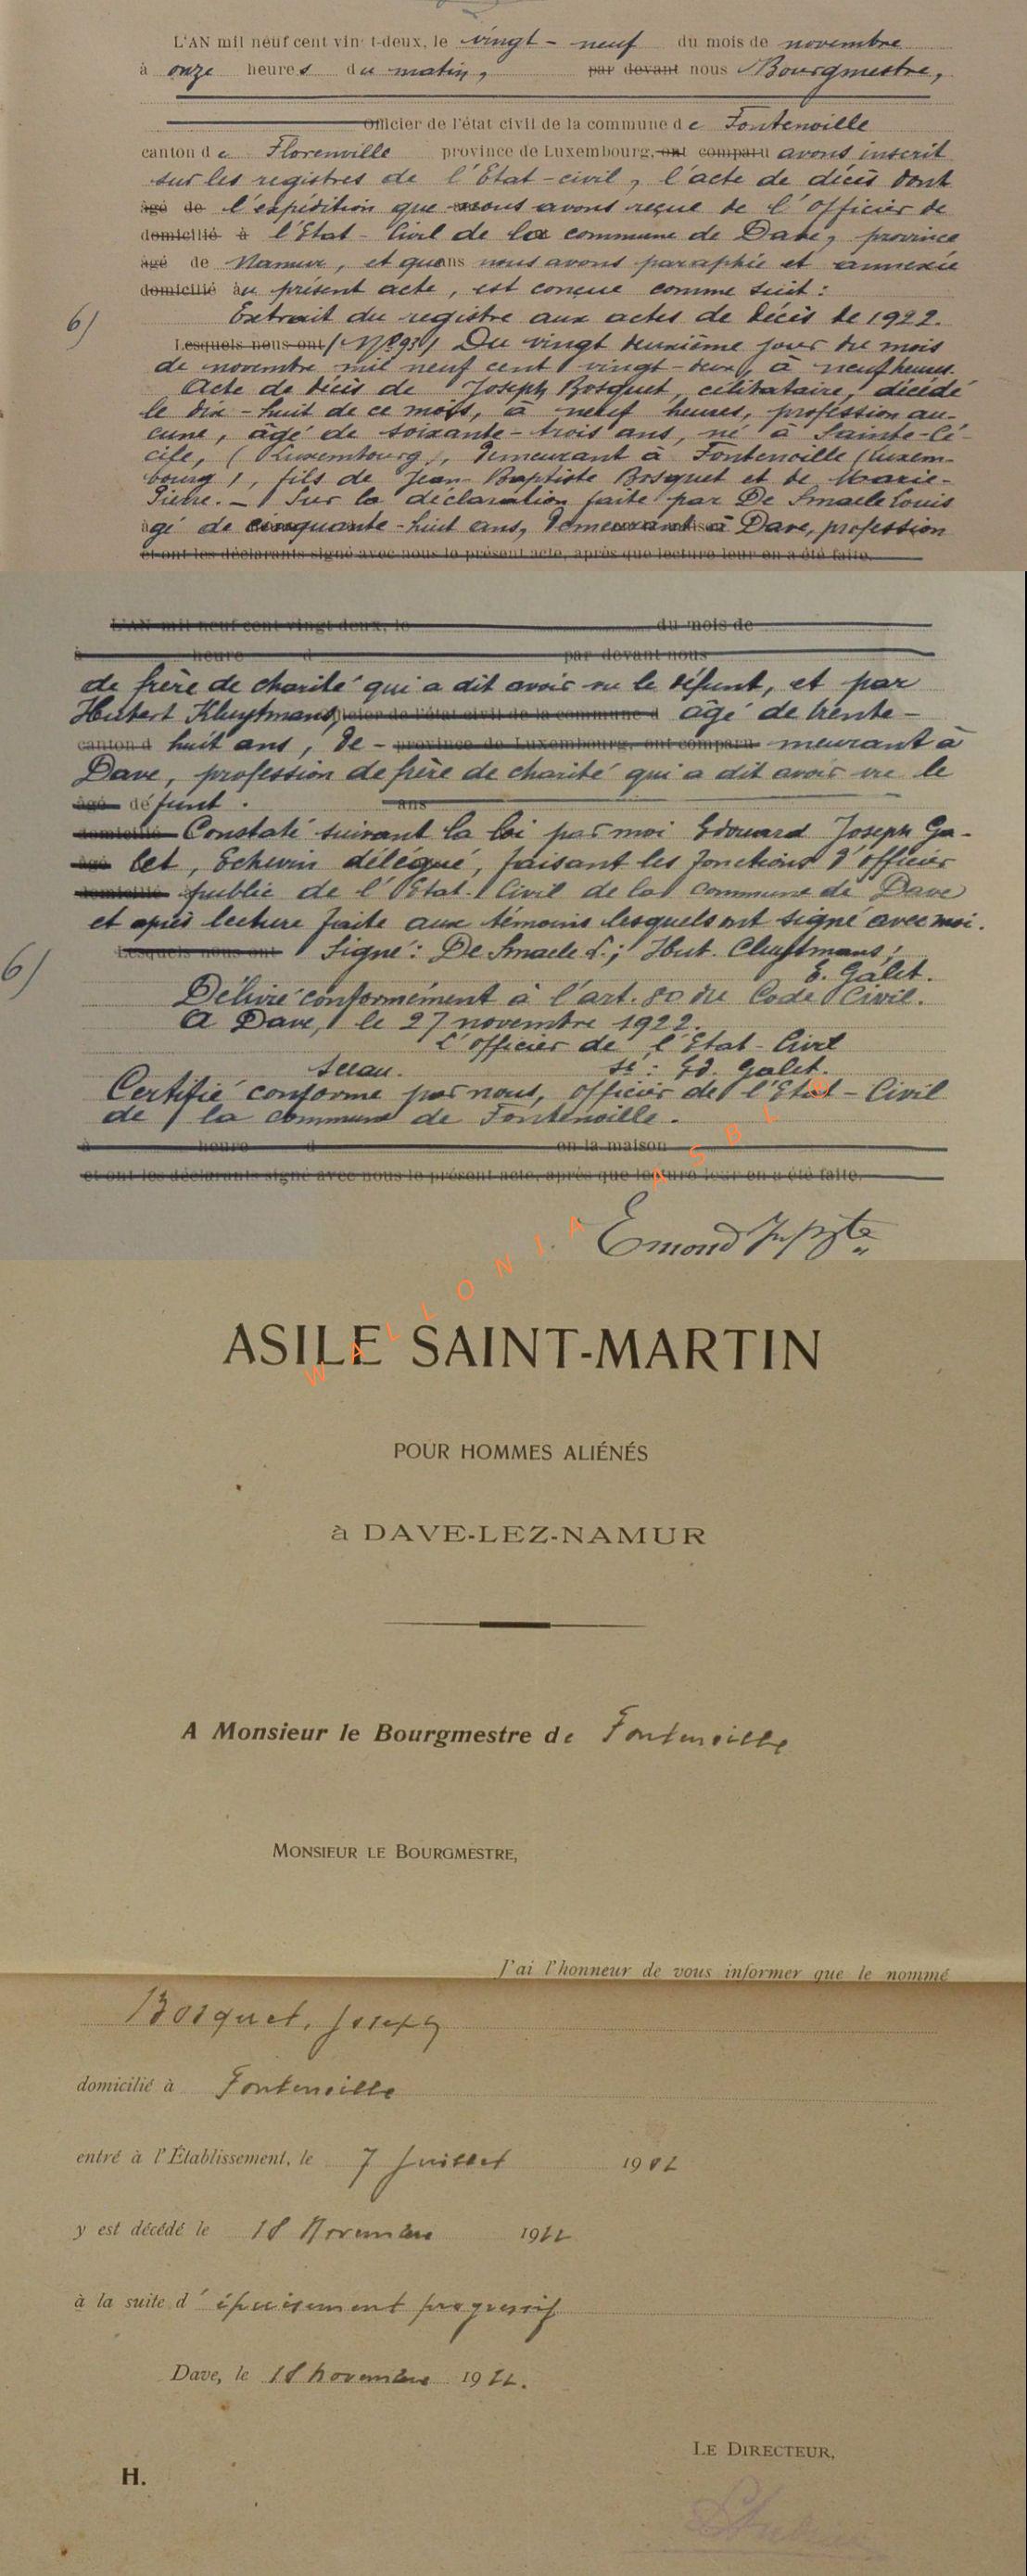 L'AN mil neuf cent vingt-deux, le vingt-neuf du mois de novembre
à onze heures du matin, par devant nous Bourgmestre,
Officier de l'état civil de la commune de Fontenoille
canton de Florenville province de Luxembourg, ont comparu avons inscrit
sur les registres de l'Etat-civil, l'acte de décès dont
âgé de l'expédition que nous avons reçue de l'Officier de
domicilié à l'Etat-Civil de la commune de Dave, province
âgé de Namur, et que ans nous avons paraphée et annexée
domicilié au présent acte, est conçue comme suit :
6) Extrait du registre aux actes de décès de 1922.
Lesquels nous ont (N° 93) Du vingt deuxième jour du mois
de novembre mil neuf cent vingt-deux, à neuf heures.
Acte de décès de Joseph Bosquet, célibataire, décédé
le dix-huit de ce mois, à neuf heures, profession au-
cune, âgé de soixante-trois ans, né à Sainte-Cé-
cile, (Luxembourg), demeurant à Fontenoille (Luxem-
bourg), fils de Jean-Baptiste Bosquet et de Marie-
Pierre. – Sur la déclaration faite par De Smaele Louis
âgé de cinquante-huit ans, demeurant à Dave, profession
et ont les déclarants signé avec nous le présent acte, après que lecture leur en a été faite.
L'AN mil neuf cent vingt-deux, le du mois de
à heure d par devant nous
de frère de charité qui a dit avoir vu le défunt, et par
Hubert Kluytmans, officier de l'état civil de la commune d âgé de trente-
canton d huit ans, de- province de Luxembourg, ont comparu meurant à
Dave, profession de frère de charité qui a dit avoir vu le
âgé défunt. ans
domicilié Constaté suivant la loi par moi Edouard Joseph Ga-
âgé let, Echevin délégué, faisant les fonctions d'officier
domicilié public de l'Etat-Civil de la commune de Dave
et après lecture faite aux témoins lesquels ont signé avec moi.
6) Lesquels nous ont Signé : De Smaele L.; Hub. Cluytmans;
E. Galet.
Délivré conformément à l'art. 80 du Code Civil.
A Dave, le 27 novembre 1922.
L'officier de l'Etat-Civil
Sceau. sé : Ed. Galet.
Certifié conforme par nous, officier de l'Etat-Civil
de la commune de Fontenoille.
à heure d en la maison
et ont les déclarants signé avec nous le présent acte, après que lecture leur en a été faite.
Emond
WALLONIA ASBL ©
ASILE SAINT-MARTIN
POUR HOMMES ALIÉNÉS
à DAVE-LEZ-NAMUR
A Monsieur le Bourgmestre de Fontenoille
MONSIEUR LE BOURGMESTRE,
J'ai l'honneur de vous informer que le nommé
Bosquet, Joseph
domicilié à Fontenoille
entré à l'Établissement, le 7 Juillet 1902
y est décédé le 18 Novembre 1922
à la suite d'épuisement progressif
Dave, le 18 novembre 1922.
LE DIRECTEUR,
H.